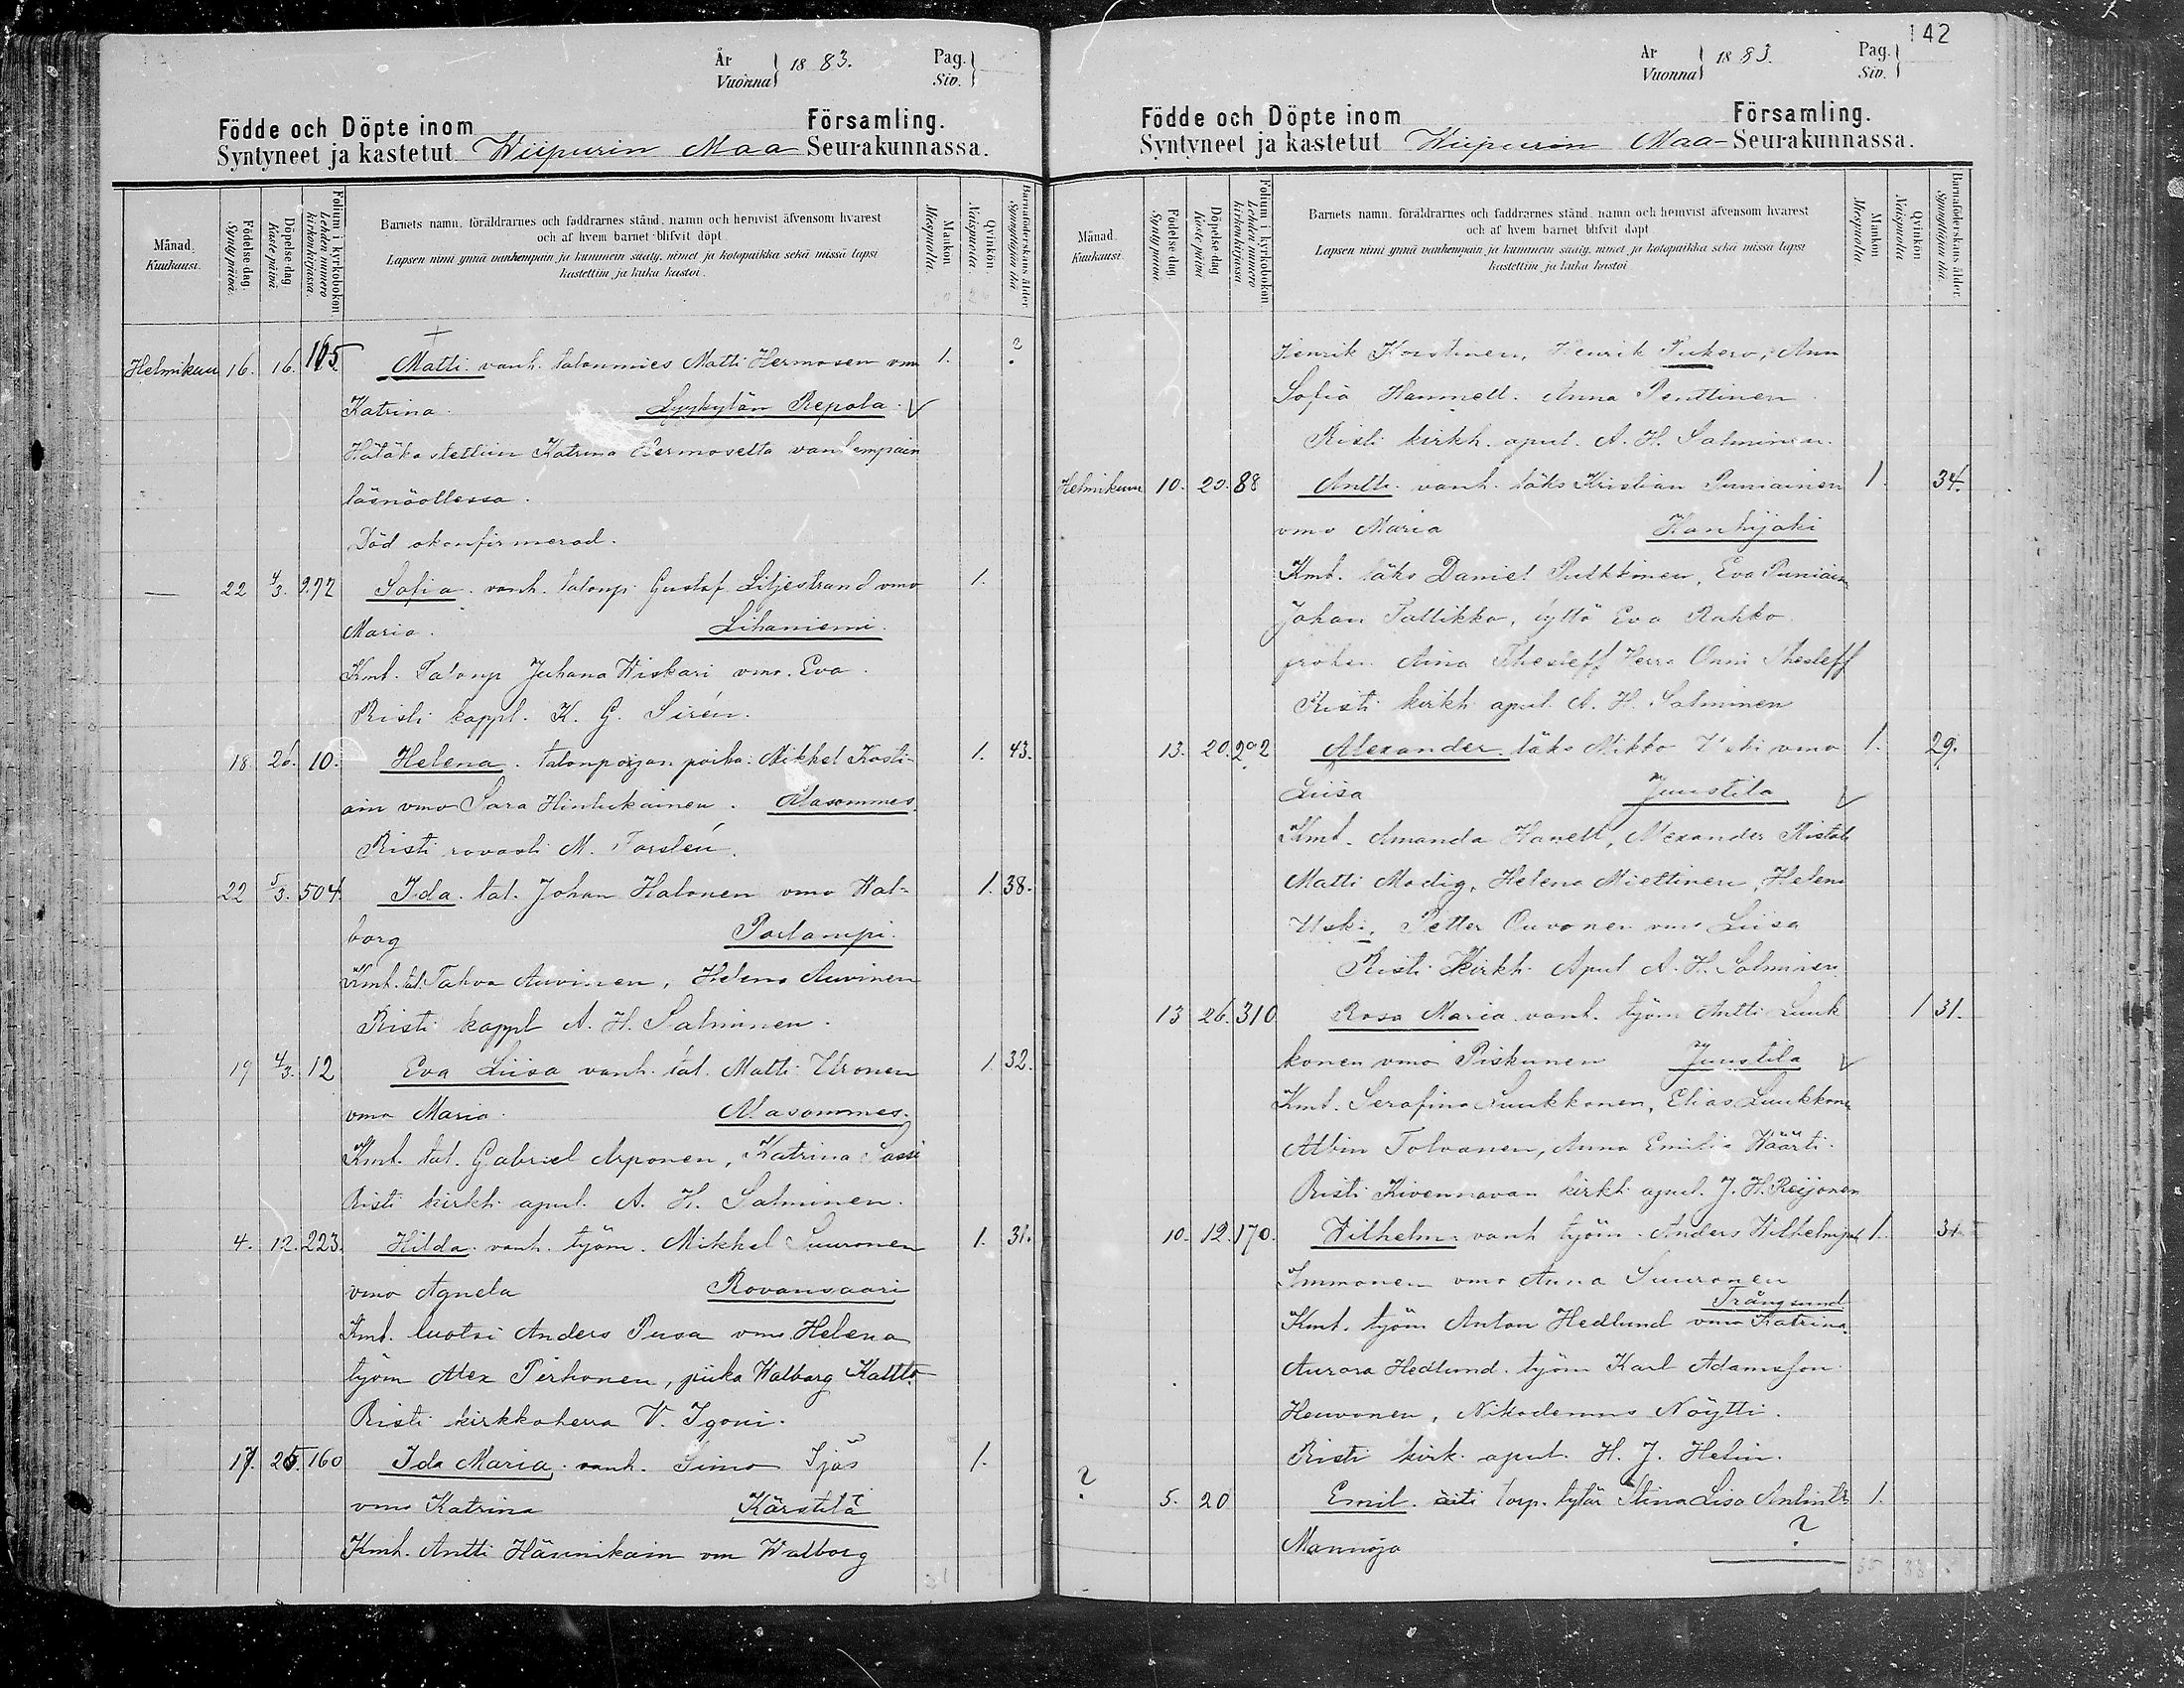 År
Vuonna
1883.
Pag.
Siv.
Födde och Döpte inom Församling.
Syntyneet ja kastetut Wiipurin Maa Seurakunnassa.
Månad.
Kuukausi.
Födelse-dag.
Synty päivä.
Döpelse-dag
Kaste päivä
Folium i kyrkobokon
Lehden numero kirkonkirjassa.
Barnets namn, föräldrarnes och faddrarnes stånd, namn och hemvist äfvensom hvarest
och af hvem barnet blifvit döpt
Lapsen nimi ynnä vanhempain ja kummein sääty, nimet ja kotopaikka sekä missä lapsi
kastettiin ja kuka kastoi.
Mankön
Miespuolta.
Qvinkön
Naispuolta.
Barnaföderskans ålder
Synnyttäjän ikä
Helmikuu 16. 16. 165 Matti vanh. talonmies Matti Hermosen vm 1. ?
Katrina. Lyykylän Repola.
Hätäkastettiin Katrina Hermoselta vanhempain
läsnäollessa.
Död okonfirmerad.
— 22 4/3. 277 Sofia. vanh. talonp. Gustaf Liljestrand vmo 1.
Maria. Lihaniemi.
Kmt. Talonp Juhana Wiskari vmo. Eva.
Risti kappl. K. G. Sirén.
18. 26. 10. Helena. talonpojan poika: Mikkel Kosti- 1. 43.
ain vmo Sara Hinkukainen. Alasommes.
Risti rovasti M. Forstén.
22 5/3. 504. Ida. tal. Johan Halonen vmo Wal- 1. 38.
borg Porlampi.
Kmt. tal. Tahvo Auvinen, Helena Auvinen
Risti kappl A. H. Salminen.
19 4/3. 12 Eva Liisa vanh. tal. Matti Uronen 1 32.
vmo Maria. Alasommes.
Kmt. tal. Gabriel Arponen, Katrina Sassi
Risti kirkh. apul. A. H. Salminen.
4. 12. 223. Hilda. vanh. työm. Mikkel Suuronen 1. 31.
vmo Agneta Rovansaari
Kmt. luotsi Anders Pusa vmo Helena
työm Alex Pirhonen, piika Walborg
Risti kirkkoherra V. Igoni.
17. 25. 160 Ida Maria. vanh. Simo Ijäs 1.
vmo Katrina Kärstilä
Kmt. Antti Hännikäin vm Walborg
142
År
Vuonna
1883.
Pag.
Siv.
Födde och Döpte inom Församling.
Syntyneet ja kastetut Wiipurin Maa- Seurakunnassa.
Månad.
Kuukausi.
Födelse-dag.
Synty päivä.
Döpelse-dag
Kaste päivä
Folium i kyrkobokon
Lehden numero kirkonkirjassa
Barnets namn, föräldrarnes och faddrarnes stånd, namn och hemvist äfvensom hvarest
och af hvem barnet blifvit döpt
Lapsen nimi ynnä vanhempain ja kummein sääty, nimet ja kotopaikka sekä missä lapsi
kastettiin ja kuka kastoi
Mankön
Miespuolta
Qvinkön
Naispuolta
Barnaföderskans ålder.
Synnyttäjän ikä.
Henrik Korstinen, Henrik Pukero, Ann
Sofia Hammell. Anna Penttinen.
Risti kirkh. apul. A. H. Salminen.
Helmikuu 10. 20. 88 Antti. vanh. läks Kristian Puniainen 1 34.
vmo Maria Konkijoki
Kmt. läks Daniel Pulkkinen, Eva Puniain
Johan Tallikka, tyttö Eva Rahko
fröken Aina Thesleff Herra Onni Thesleff
Risti kirkh apul. A. H. Salminen
13. 20. 202 Alexander. läks Mikko Uski vmo 1. 29.
Liisa Juustila
Kmt. Amanda Hanell, Alexander Ristola
Matti Modig, Helena Miettinen, Helena
Uski, Petter Ouvonen vmo Liisa
Risti Kirkh. Apul A. H. Salminen
13 26. 310 Rosa Maria. vanh. työm Antti Luuk 1 31.
konen vmo Piskunen Juustila
Kmt. Serafina Luukkonen, Elias Luukkone
Albin Tolvanen, Anna Emilia Wäärti.
Risti Kivennavan kirkh. apul. J. H. Reijonen
10. 12. 170. Wilhelm. vanh työm. Anders Wilhelmpoi 1. 34
Immonen vmo Anna Suuronen
Trångsund
Kmt. työm Anton Hedlund vmo Katrina.
Aurora Hedlund. työm Karl Adamsson
Houvonen, Nikodemus Nöytti.
Risti kirk. apul. H. J. Helin.
? 5. 20 Emil. äiti torp. tytär Stina Lisa Antintr 1.
Mannoja ?